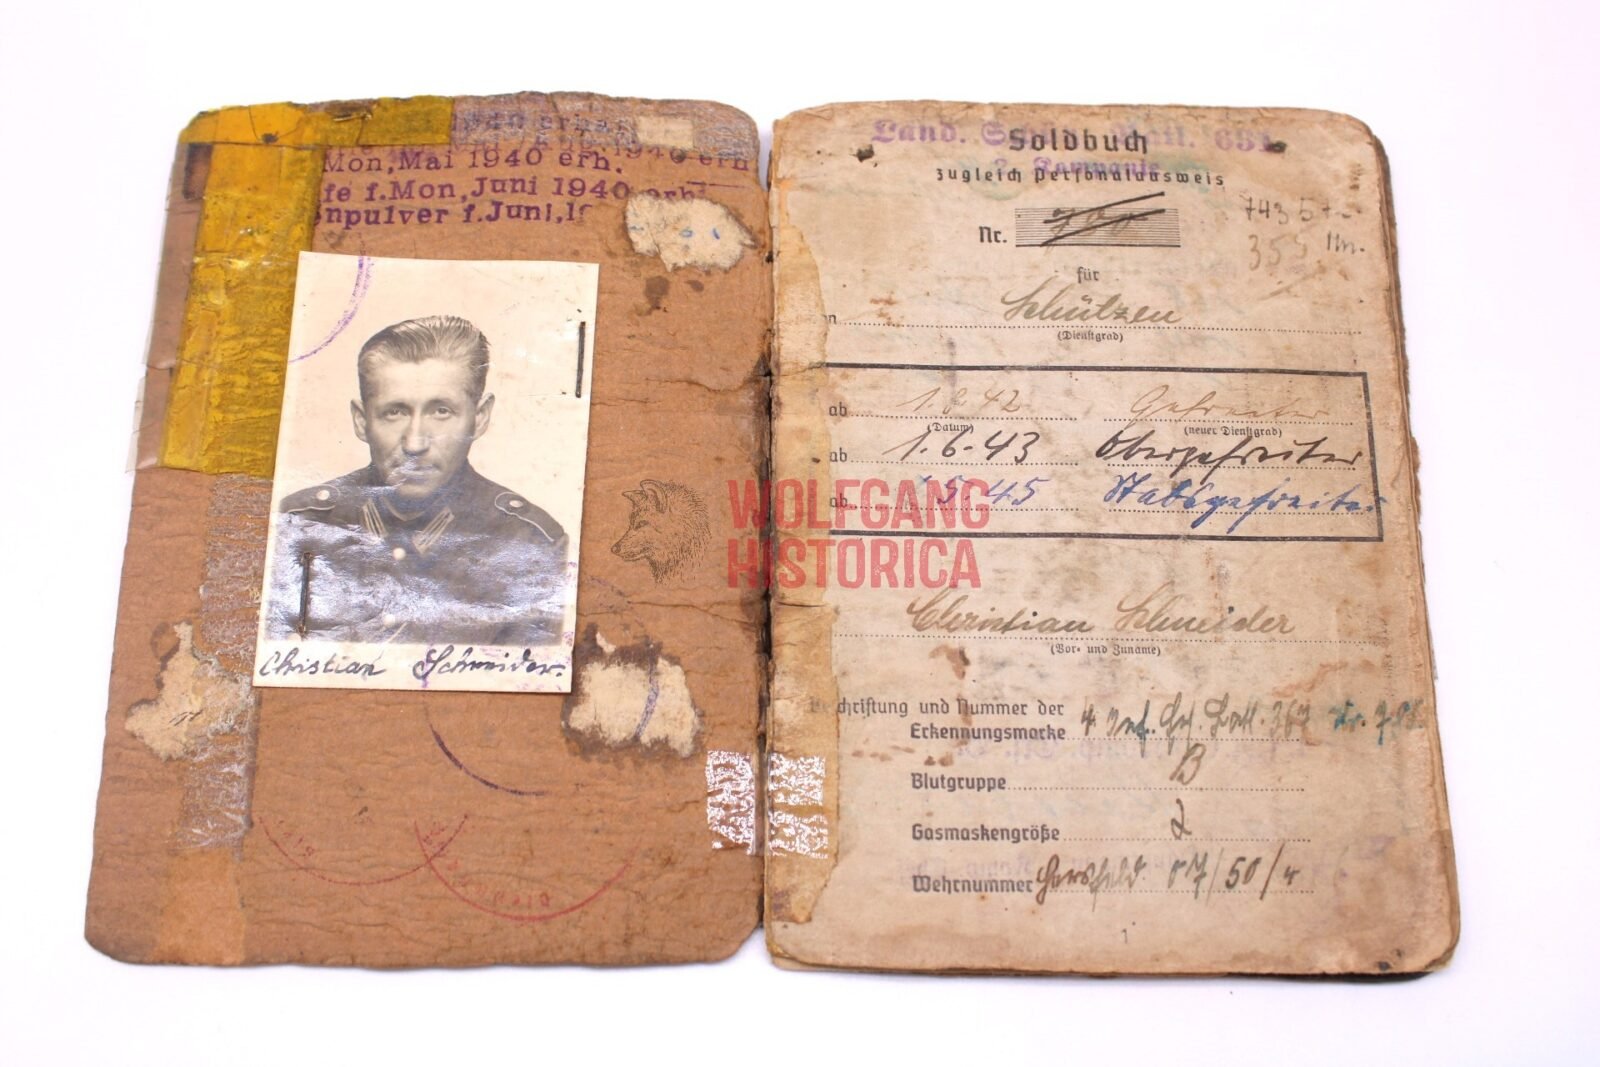 Mon, Mai 1940 erh.
fe f. Mon, Juni 1940 erh.
npulver f. Juni, 19
Christian Schneider.
Land. Schütz. Batl. 631
2. Kompanie
Soldbuch
zugleich Personalausweis
Nr.
für
Schützen
(Dienstgrad)
ab 1.6.42 Gefreiter
(Datum) (neuer Dienstgrad)
ab 1.6.43 Obergefreiter
ab 1.5.45 Stabsgefreiter
WOLFGANG
HISTORICA
Christian Schneider
(Vor- und Zuname)
chriftung und Nummer der
Erkennungsmarke 4. Inf. Ers. Batl. 367 Nr.
Blutgruppe B
Gasmaskengröße 2
Wehrnummer Hersfeld 07/50/4
1